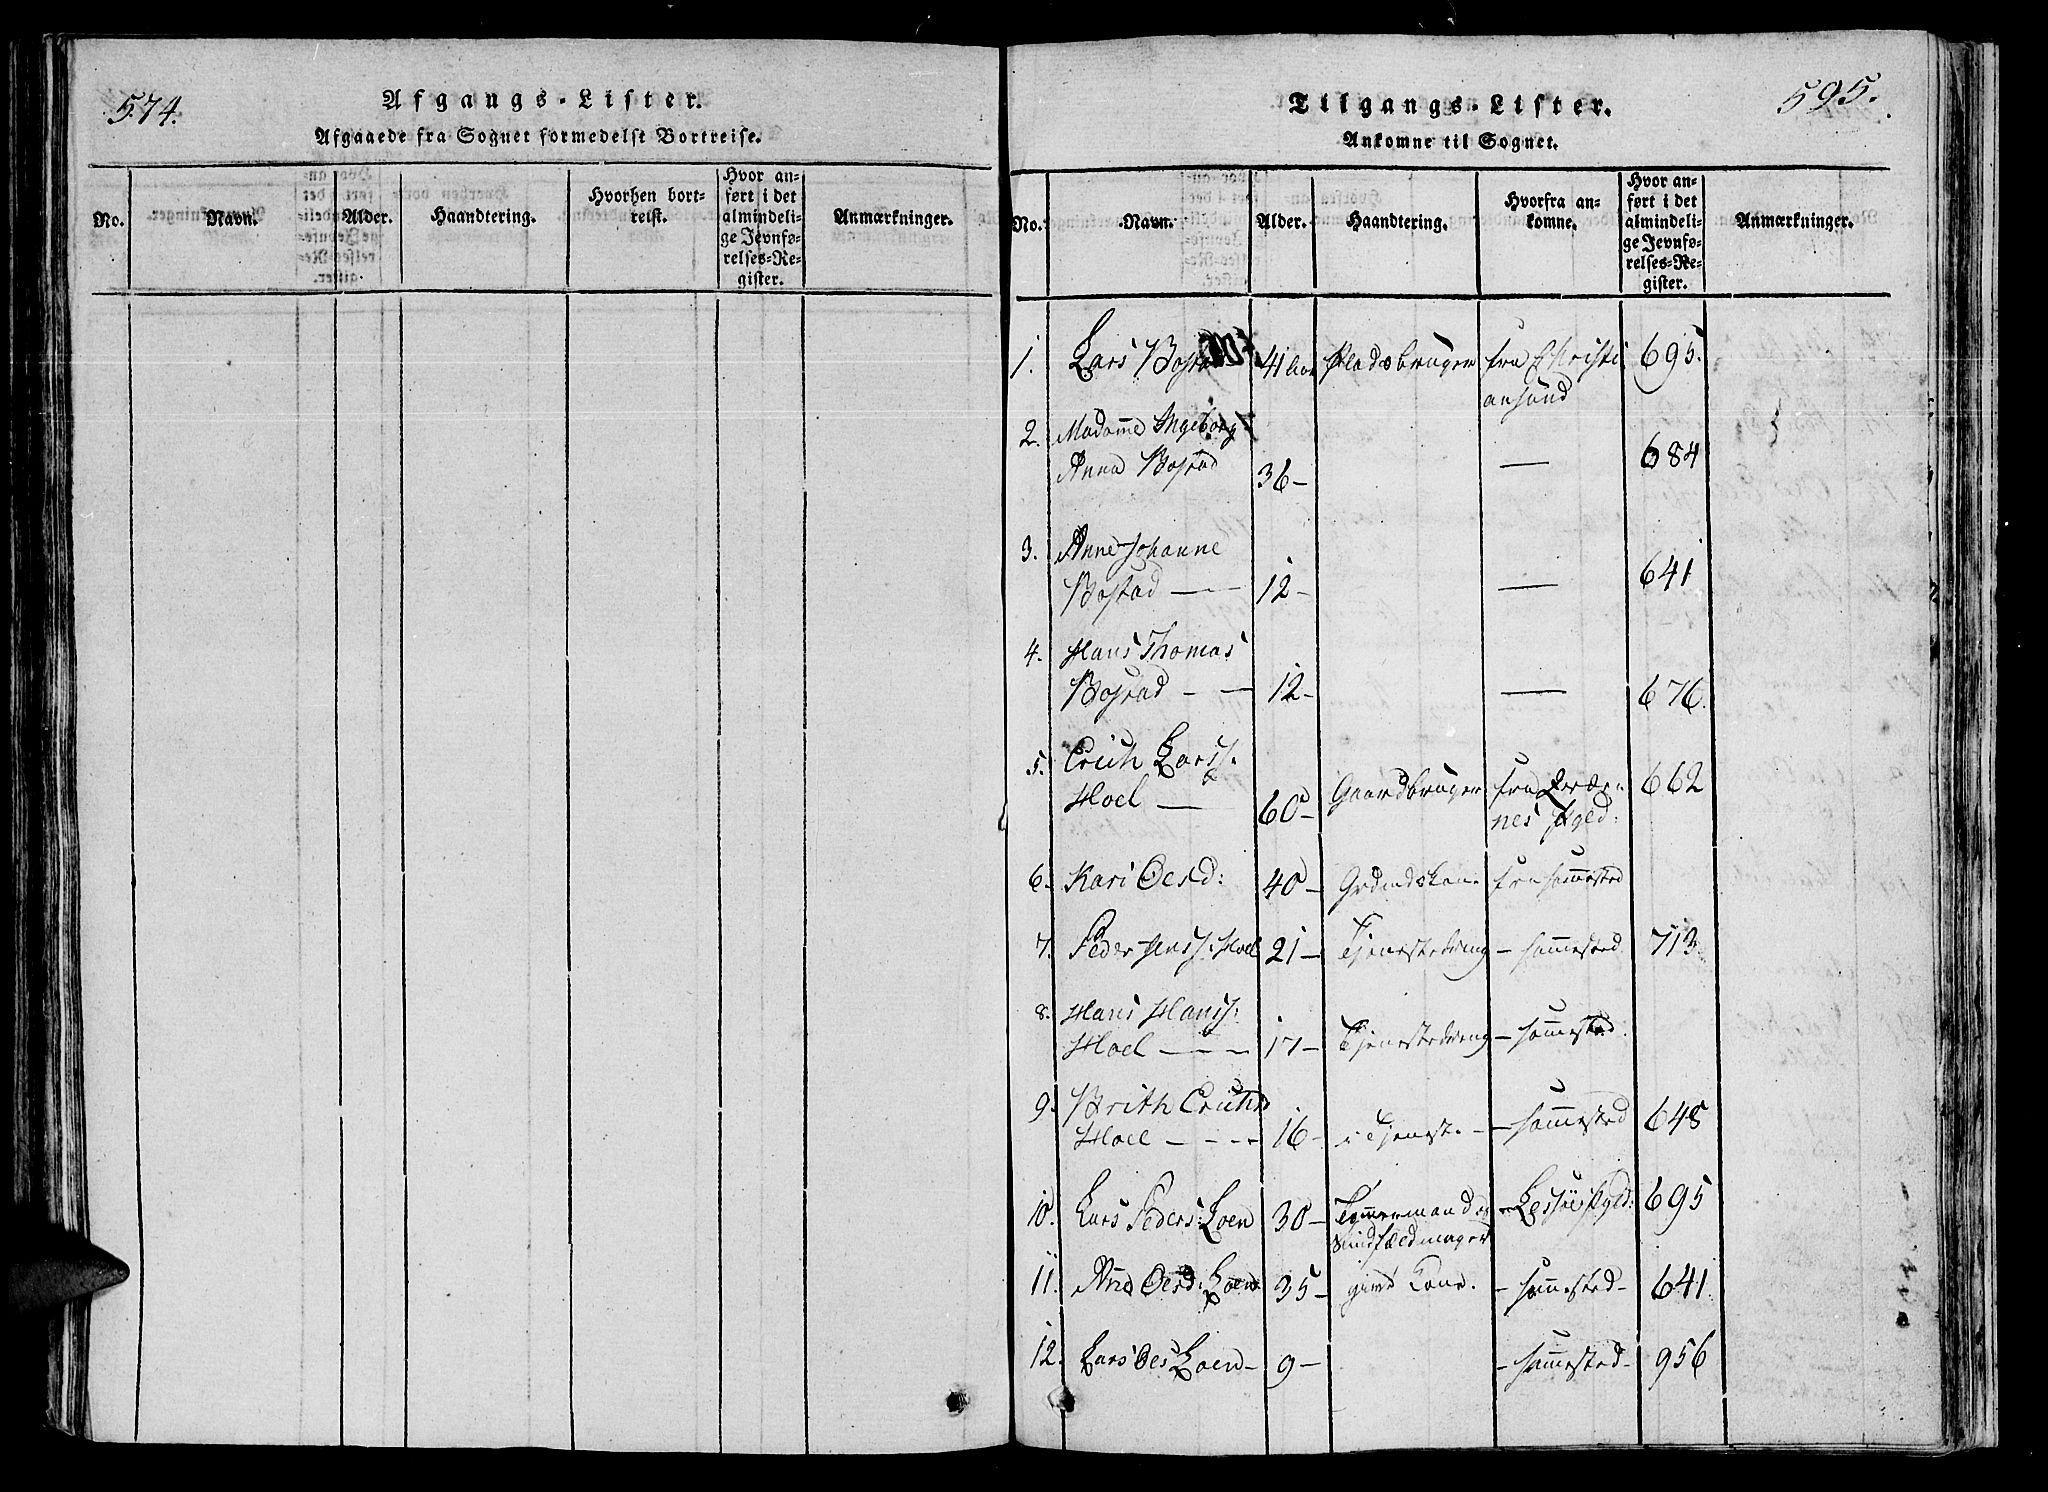 574.
Afgangs-Lister.
Afgaaede fra Sognet formedelst Bortreise.
No. Navn. Alder. Haandtering. Hvorhen bort-
reist. Hvor an-
ført i det
almindeli-
ge Jevnfø-
relses-Re-
gister. Anmærkninger.
595.
Tilgangs-Lister.
Ankomne til Sognet.
No. Navn. Alder. Haandtering. Hvorfra an-
komne. Hvor an-
ført i det
almindeli-
ge Jevnfø-
relses-Re-
gister. Anmærkninger.
1. Lars Bostad 41 Aar Pladsbruger fra Christi 695.
ansund
2. Madame Ingeborg
Anna Bostad 36 — — 684
3. Anne Johanne
Bostad — 12 — — 641
4. Hans Thomas
Bostad — — 12 — — 676.
5. Erich Larss.
Hoel — 60 — Gaardbruger fra 662
nes Pgld:
6. Kari Olesd: 40 — fra sammested
7. Peder Jenss: Hoel 21 — Tjenestedreng — sammested 713.
8. Hans Hanss:
Hoel — — 17 — Tjenestedreng — sammested.
9. Brith Erichsd
Hoel — — — 16 — i Tjeneste — sammested 648
10. Lars Peders: Loen 30 — Tømmermand og — Lessøe Pgld: 695
11. Ane Olesd: Loen 35 — givt Kone. — sammested — 641.
12. Lars Oles Loen — 9 — — sammested — 956